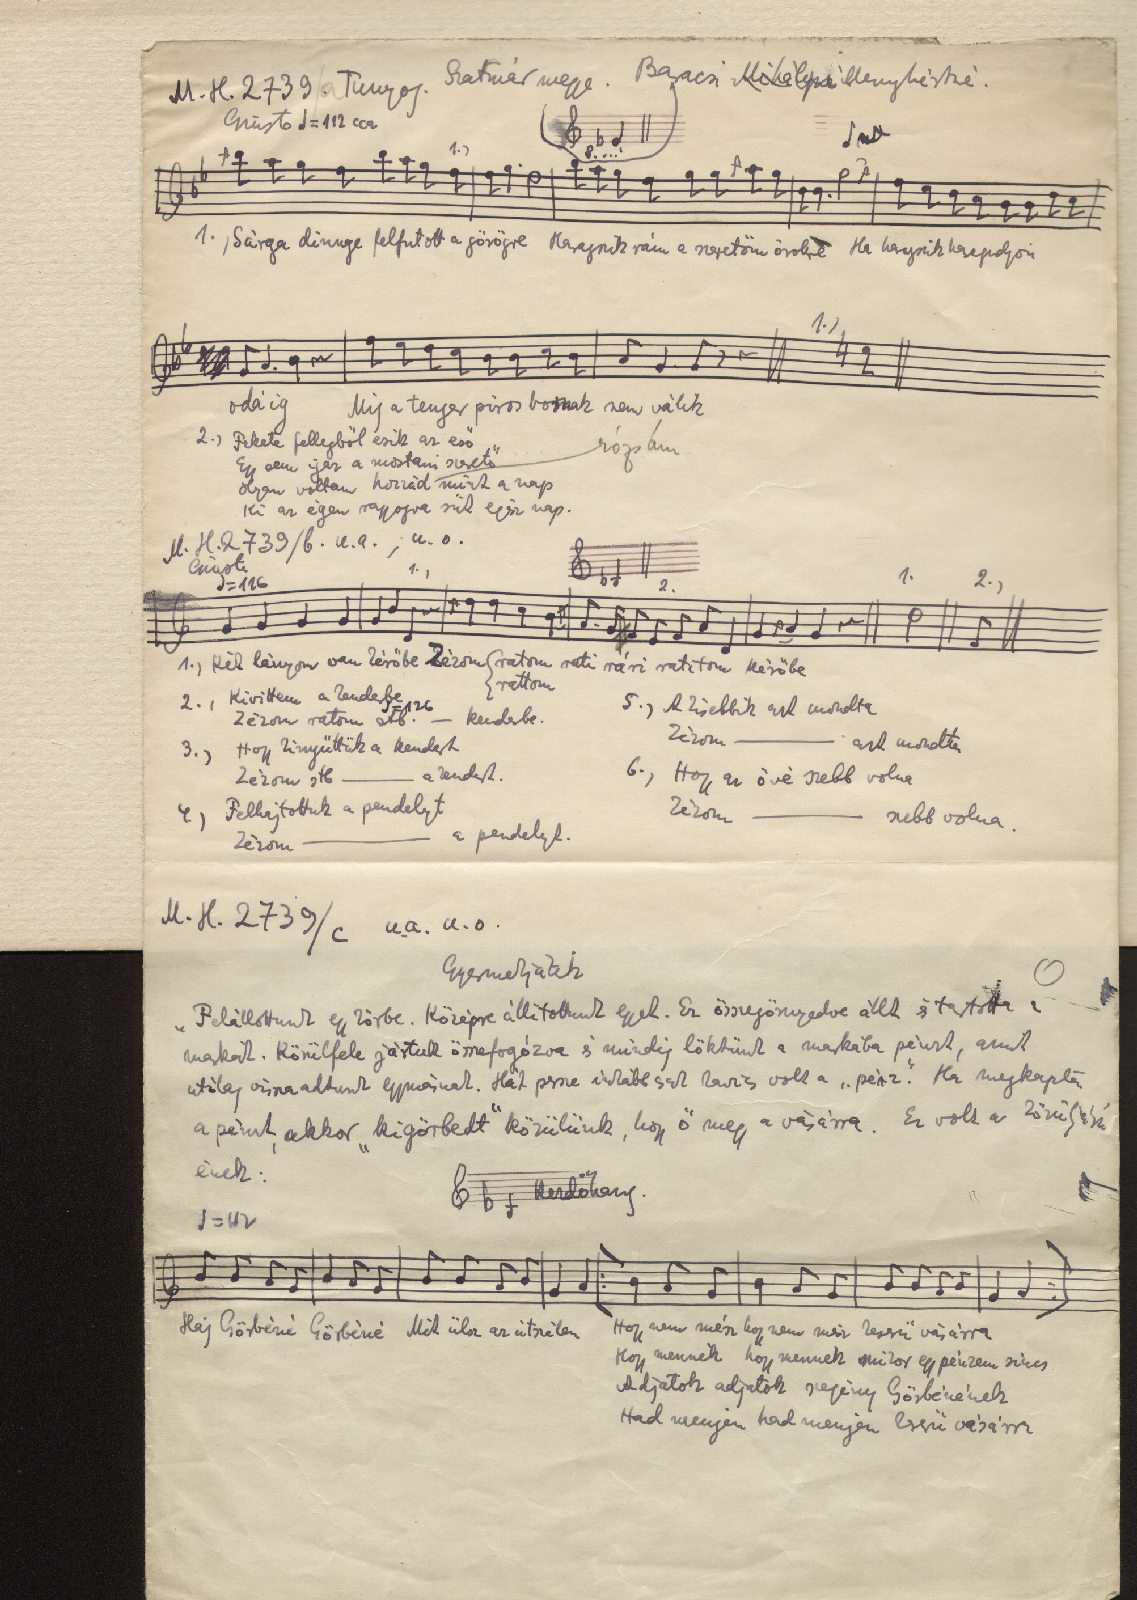 M. H. 2739/a Tunyog. Szatmár megye. Baracsi Mihályné Menyhértné.
Giusto ♩=112 cca
8.....
1.,
1., Sárga dinnye felfutott a görögre Haragszik rám a szeretőm örökre Ha haragszik haragudjon
1.,
odáig Míg a tenger piros bornak nem válik
2., Fekete fellegből esik az eső
Egy sem igaz a mostani szerető
rózsám
Olyan voltam hozzád mint a nap
Ki az égen ragyogva süt egész nap.
M. H. 2739/b. u.a. ; u.o.
Giusto
♩=116
1.,
2.
1.
2.,
1., Két lányom van kérőbe Zézom { ratom rati rári ratitom kérőbe
rattom
2., Kivittem a kenderbe
♩=126
Zézom ratom stb. — kenderbe.
3., Hogy kinyűttük a kendert
Zézom stb — a kendert.
4., Felhajtottuk a pendelyt
Zézom — a pendelyt.
5., A kisebbik azt mondta
Zézom — azt mondta
6., Hogy az övé szebb volna
Zézom — szebb volna.
M. H. 2739/c u.a. u.o.
Gyermekjáték
„Felállottunk egy körbe. Középre állítottunk egyet. Ez összegörnyedve állt s tartotta a
markát. Körülfele jártunk összefogózva s mindig löktünk a markába pénzt, amit
utólag visszaadtunk egymásnak. Hát persze inkább csak kavics volt a „pénz". Ha megkapta
a pénzt, akkor „kigörbedt" közülünk, hogy ő megy a vásárra. Ez volt a
ének:
Kezdőhang.
♩=112
Háj Görbéné Görbéné Mit ülsz az útszélen Hogy nem mész hogy nem mész keszü vásárra
Hogy mennék hogy mennék mikor egy pénzem sincs
Adjatok adjatok szegény Görbénének
Had menjen had menjen keszü vásárra